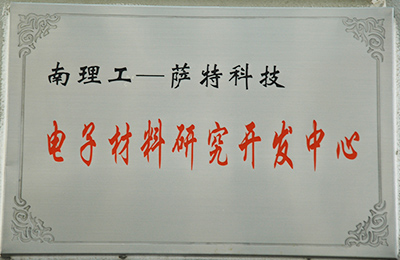 南理工—萨特科技
电子材料研究开发中心